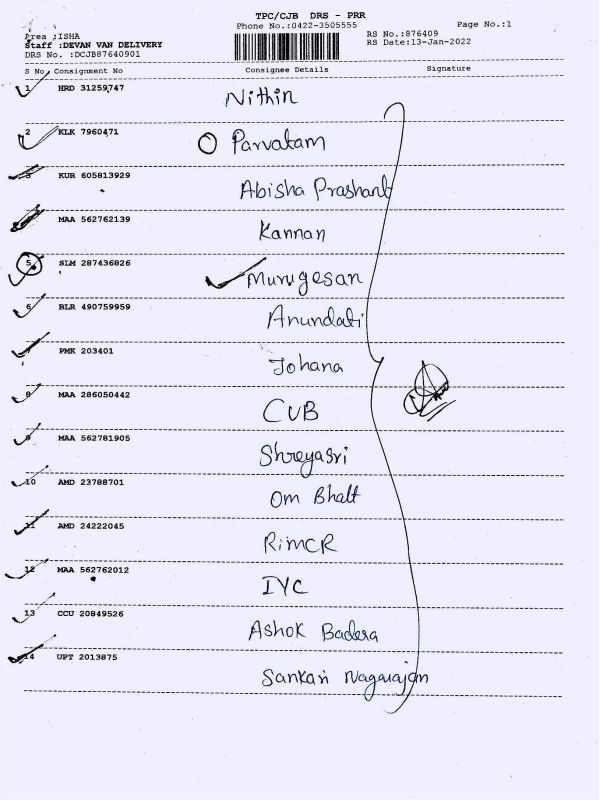 TPC/CJB DRS - PRR
Phone No.:0422-3505555 Page No.:1
Area :ISHA RS No.:876409
Staff :DEVAN VAN DELIVERY RS Date:13-Jan-2022
DRS No. :DCJB87640901
S No. Consignment No Consignee Details Signature
1 HRD 31259747 Nithin
2 KLK 7960471 Parvatam
3 KUR 605813929 Abisha Prashant
MAA 562762139 Kannan
5 SLM 287436826 Murugesan
6 BLR 490759959 Anundati
7 PMK 203401 Johana
8 MAA 286050442 CUB
9 MAA 562781905 Shreyasri
10 AMD 23788701 Om Bhatt
11 AMD 24222045 RimCR
12 MAA 562762012 IYC
13 CCU 20849526 Ashok Badera
14 UPT 2013875 Sankari Nagarajan